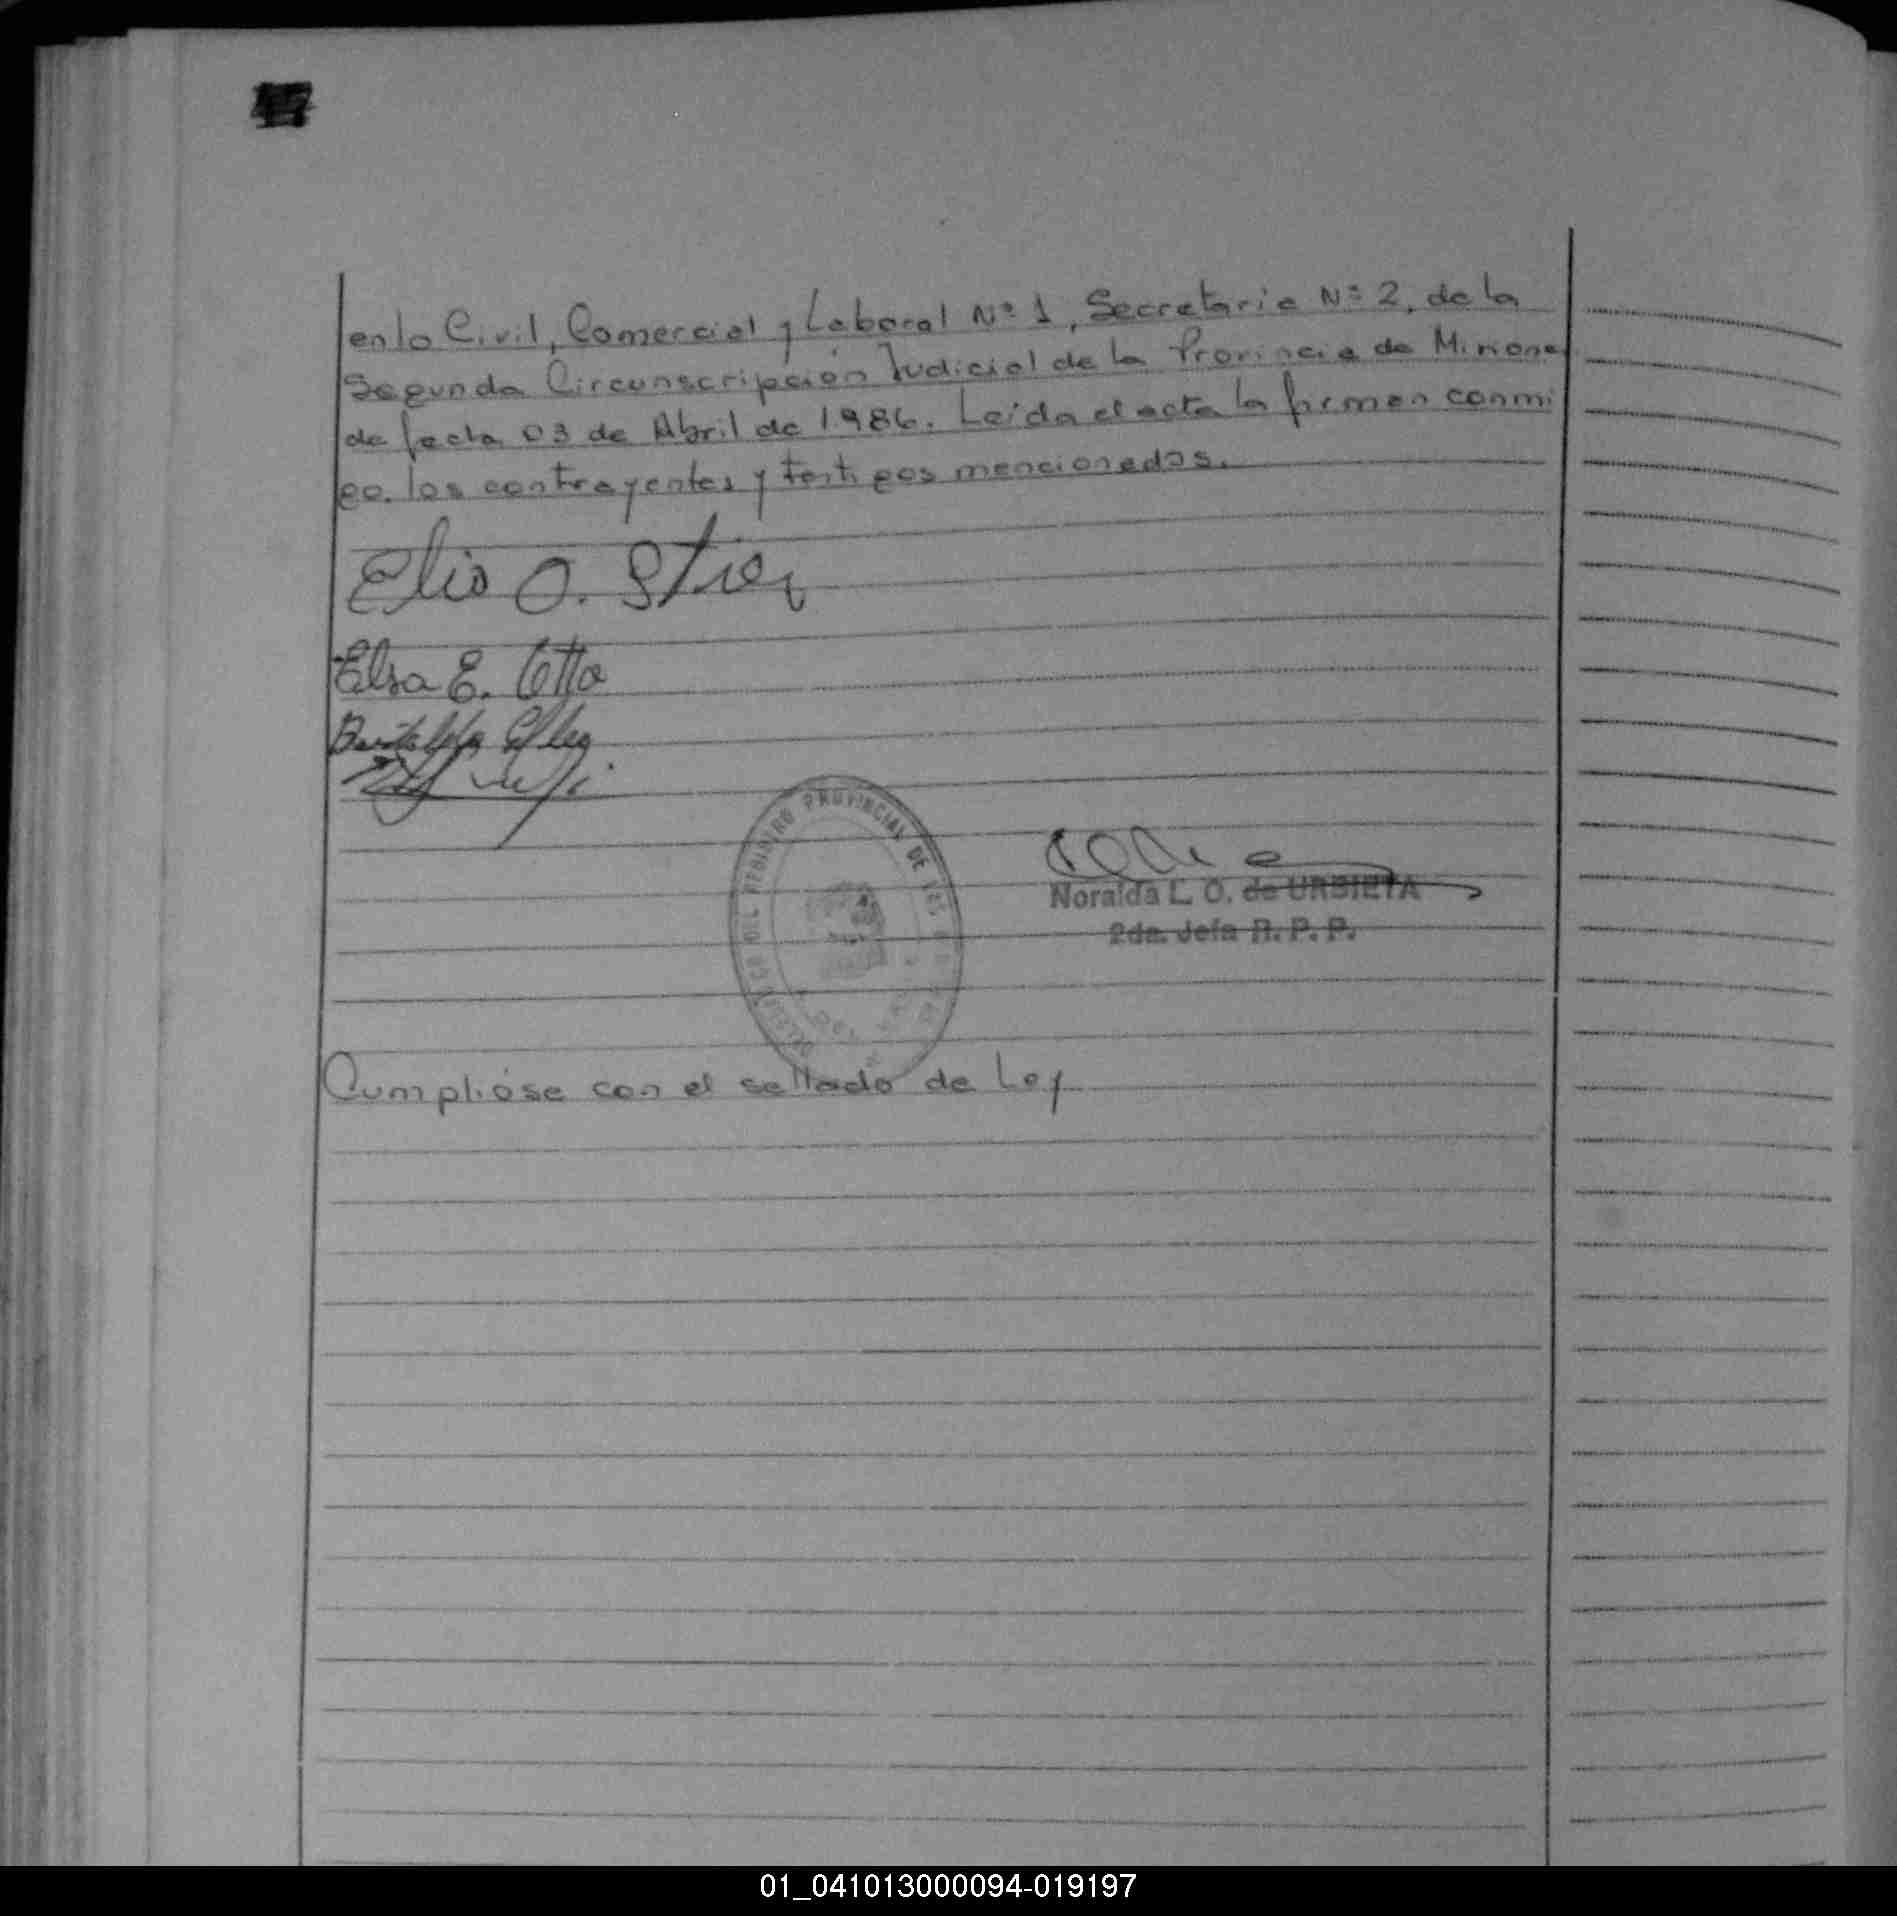 en lo Civil, Comercial y Laboral Nº 1, Secretaria Nº 2, de la
Segunda Circunscripción Judicial de la Provincia de Misiones
de fecha 03 de Abril de 1.986. Leída el acta la firman conmi
go. los contrayentes y testigos mencionados.
Elio O. Stier
Elsa E. Otto
DEL REGISTRO PROVINCIAL DE
Noraida L. O. de URBIETA
2da. Jefa R. P. P.
Cumplióse con el sellado de Ley
01_041013000094-019197